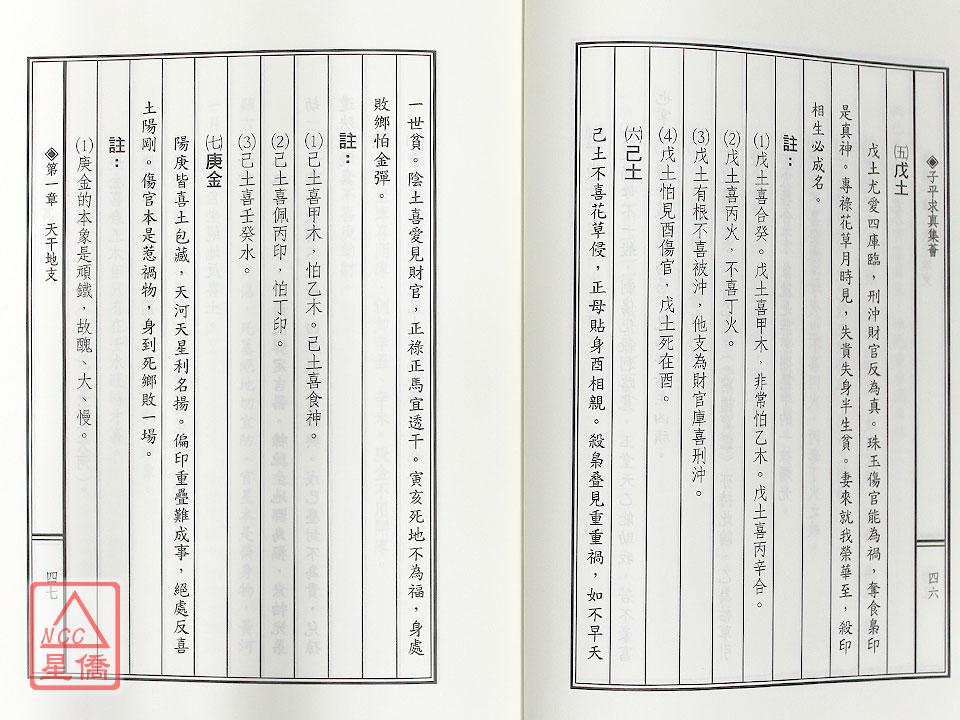 ◈子平求真集薈
四六
㈤戊土
戊土尤愛四庫臨，刑沖財官反為真。珠玉傷官能為禍，奪食梟印
是真神。專祿花草月時見，失貴失身半生貧。妻來就我榮華至，殺印
相生必成名。
註：
⑴戊土喜合癸。戊土喜甲木，非常怕乙木。戊土喜丙辛合。
⑵戊土喜丙火，不喜丁火。
⑶戊土有根不喜被沖，他支為財官庫喜刑沖。
⑷戊土怕見酉傷官，戊土死在酉。
㈥己土
己土不喜花草侵，正母貼身酉相親。殺梟叠見重重禍，如不早夭
一世貧。陰土喜愛見財官，正祿正馬宜透干。寅亥死地不為福，身處
敗鄉怕金彈。
註：
⑴己土喜甲木，怕乙木。己土喜食神。
⑵己土喜佩丙印，怕丁印。
⑶己土喜壬癸水。
㈦庚金
陽庚皆喜土包藏，天河天星利名揚。偏印重疊難成事，絕處反喜
土陽剛。傷官本是惹禍物，身到死鄉敗一場。
註：
⑴庚金的本象是頑鐵，故醜、大、慢。
◈第一章 天干地支
四七
NCC
星僑